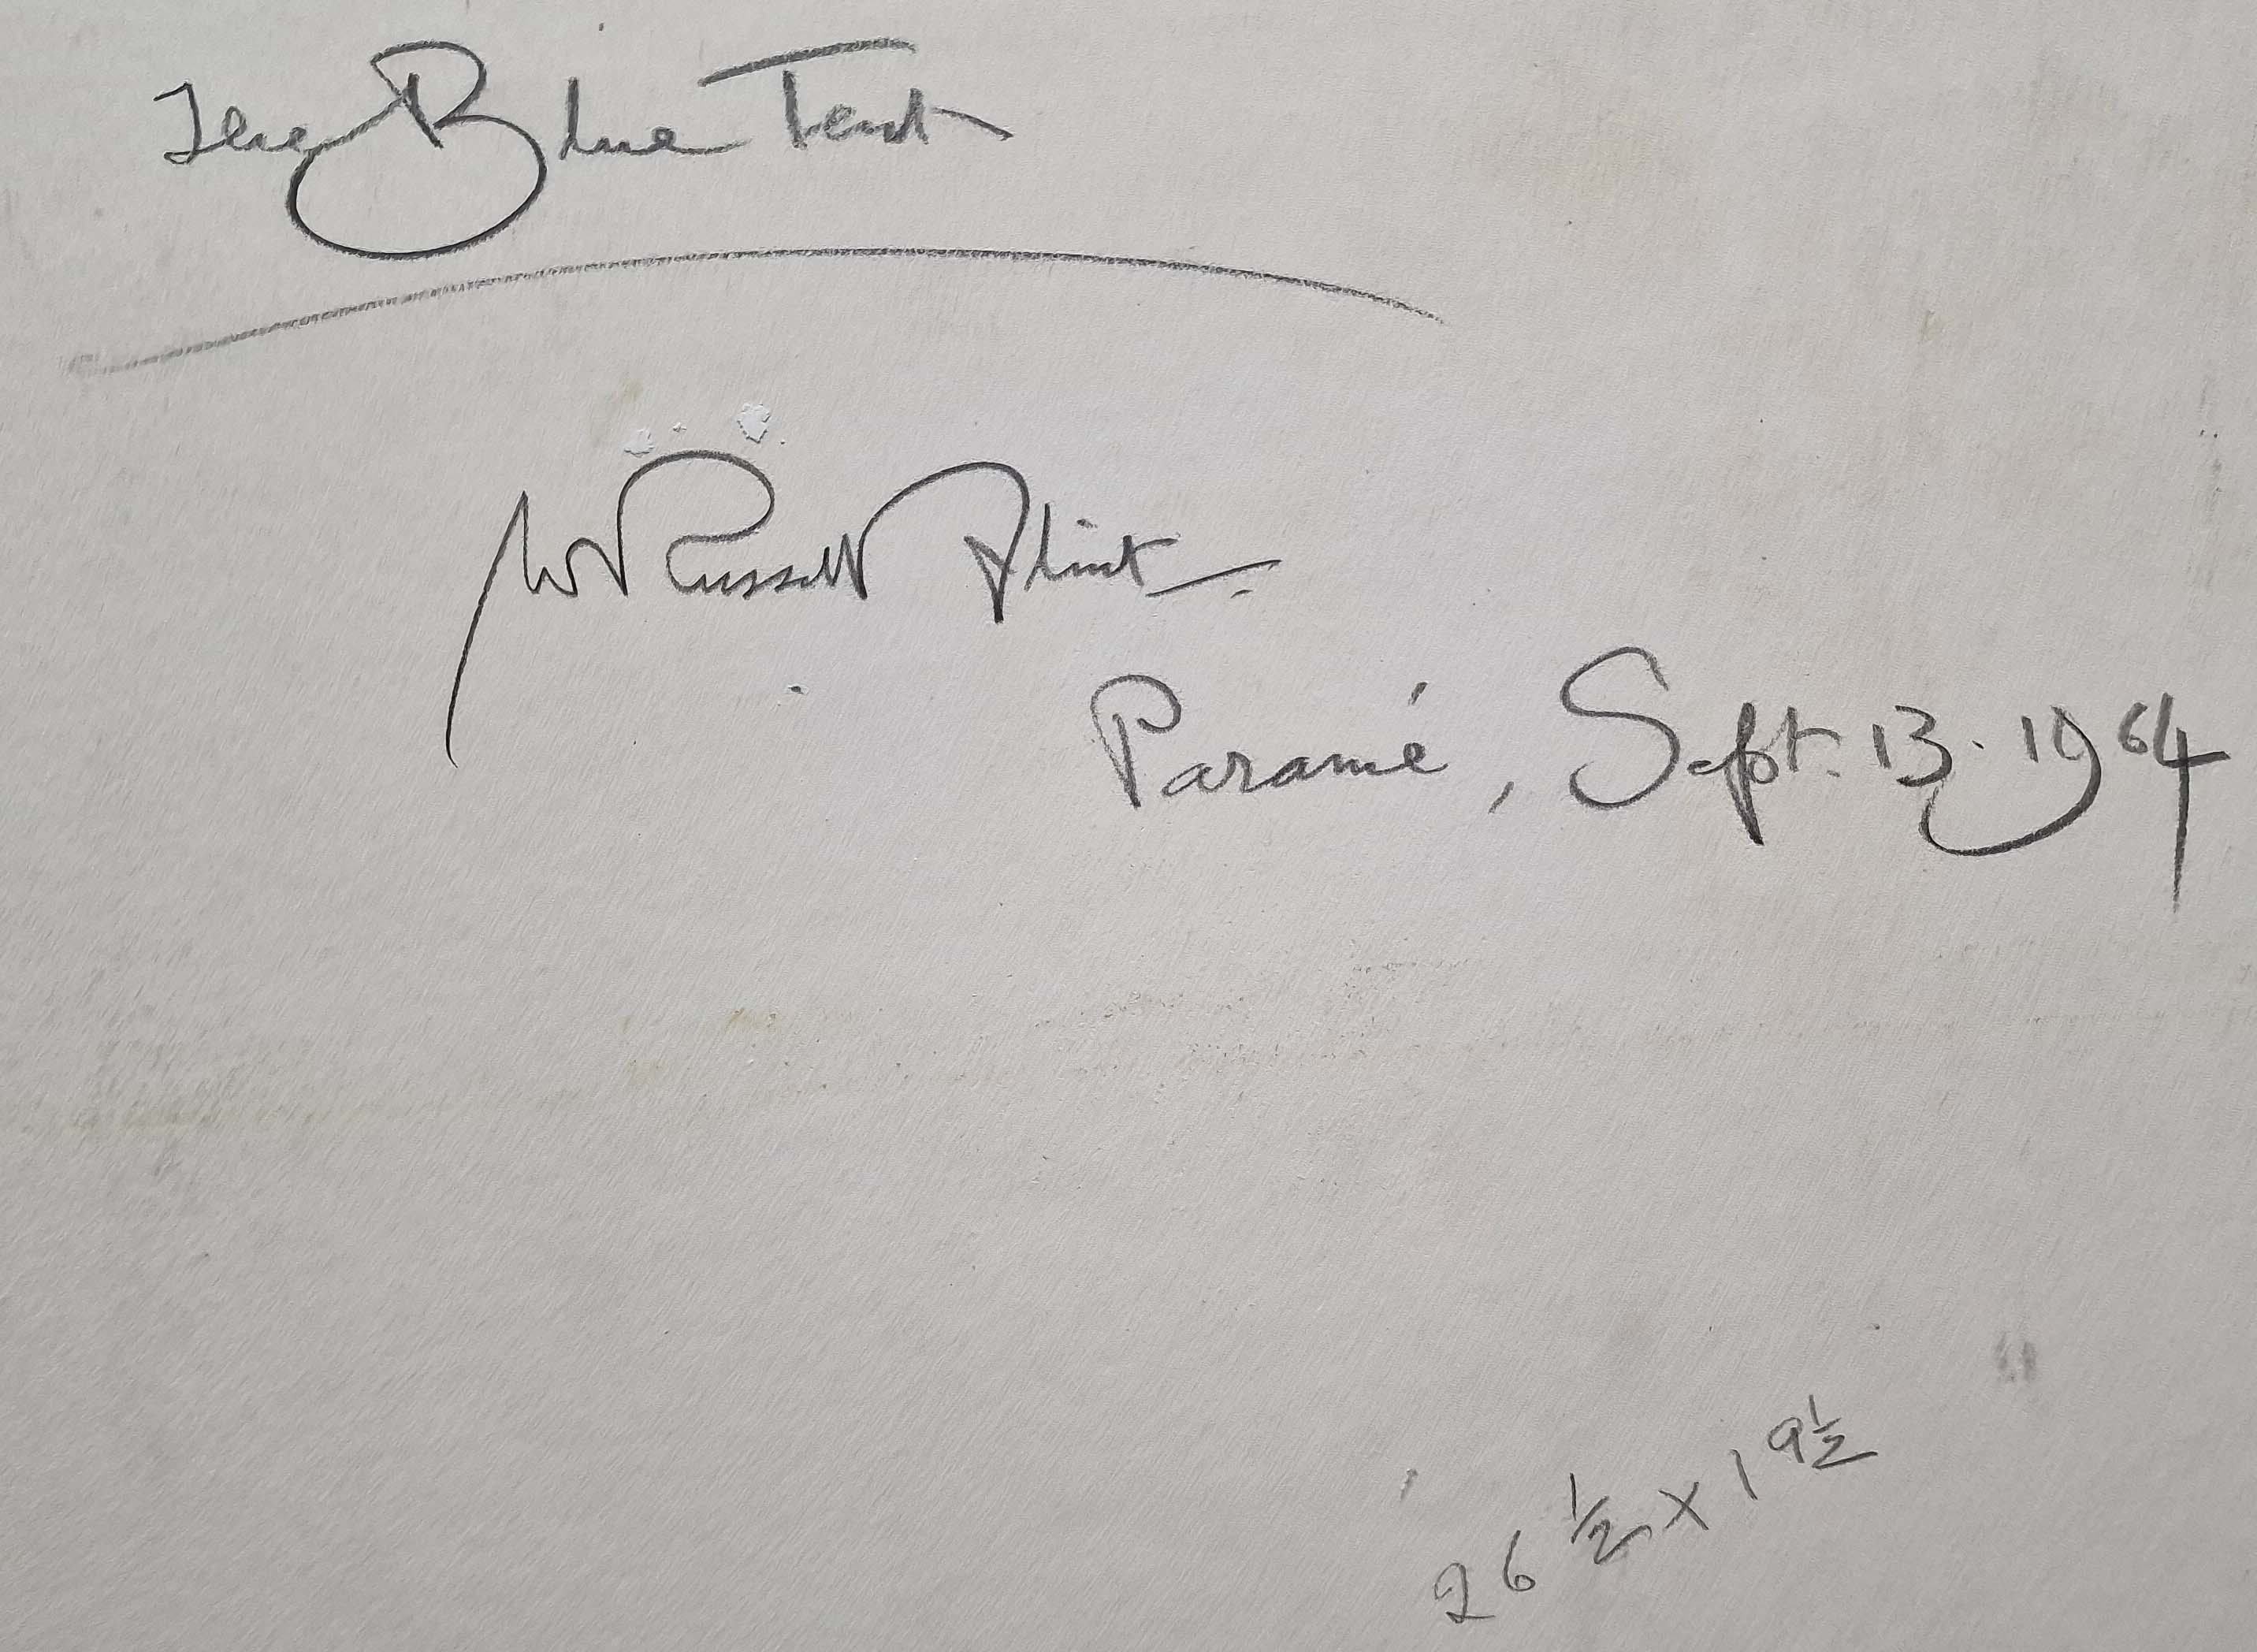 The Blue Tent
W Russell Flint.
Paramé, Sept. 13. 1964
26 ½ x 19 ½